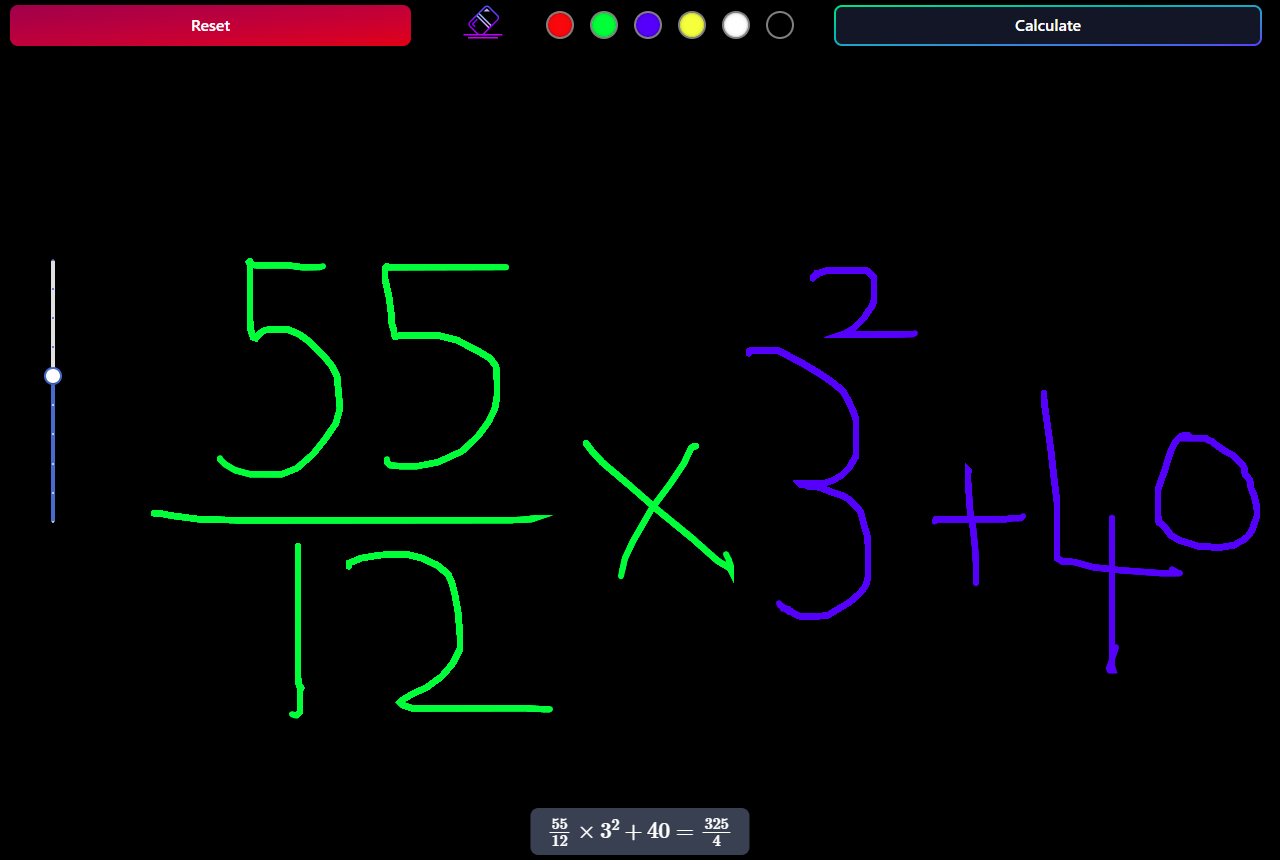 Reset Calculate
55/12 × 3² + 40
55/12 × 3² + 40 = 325/4